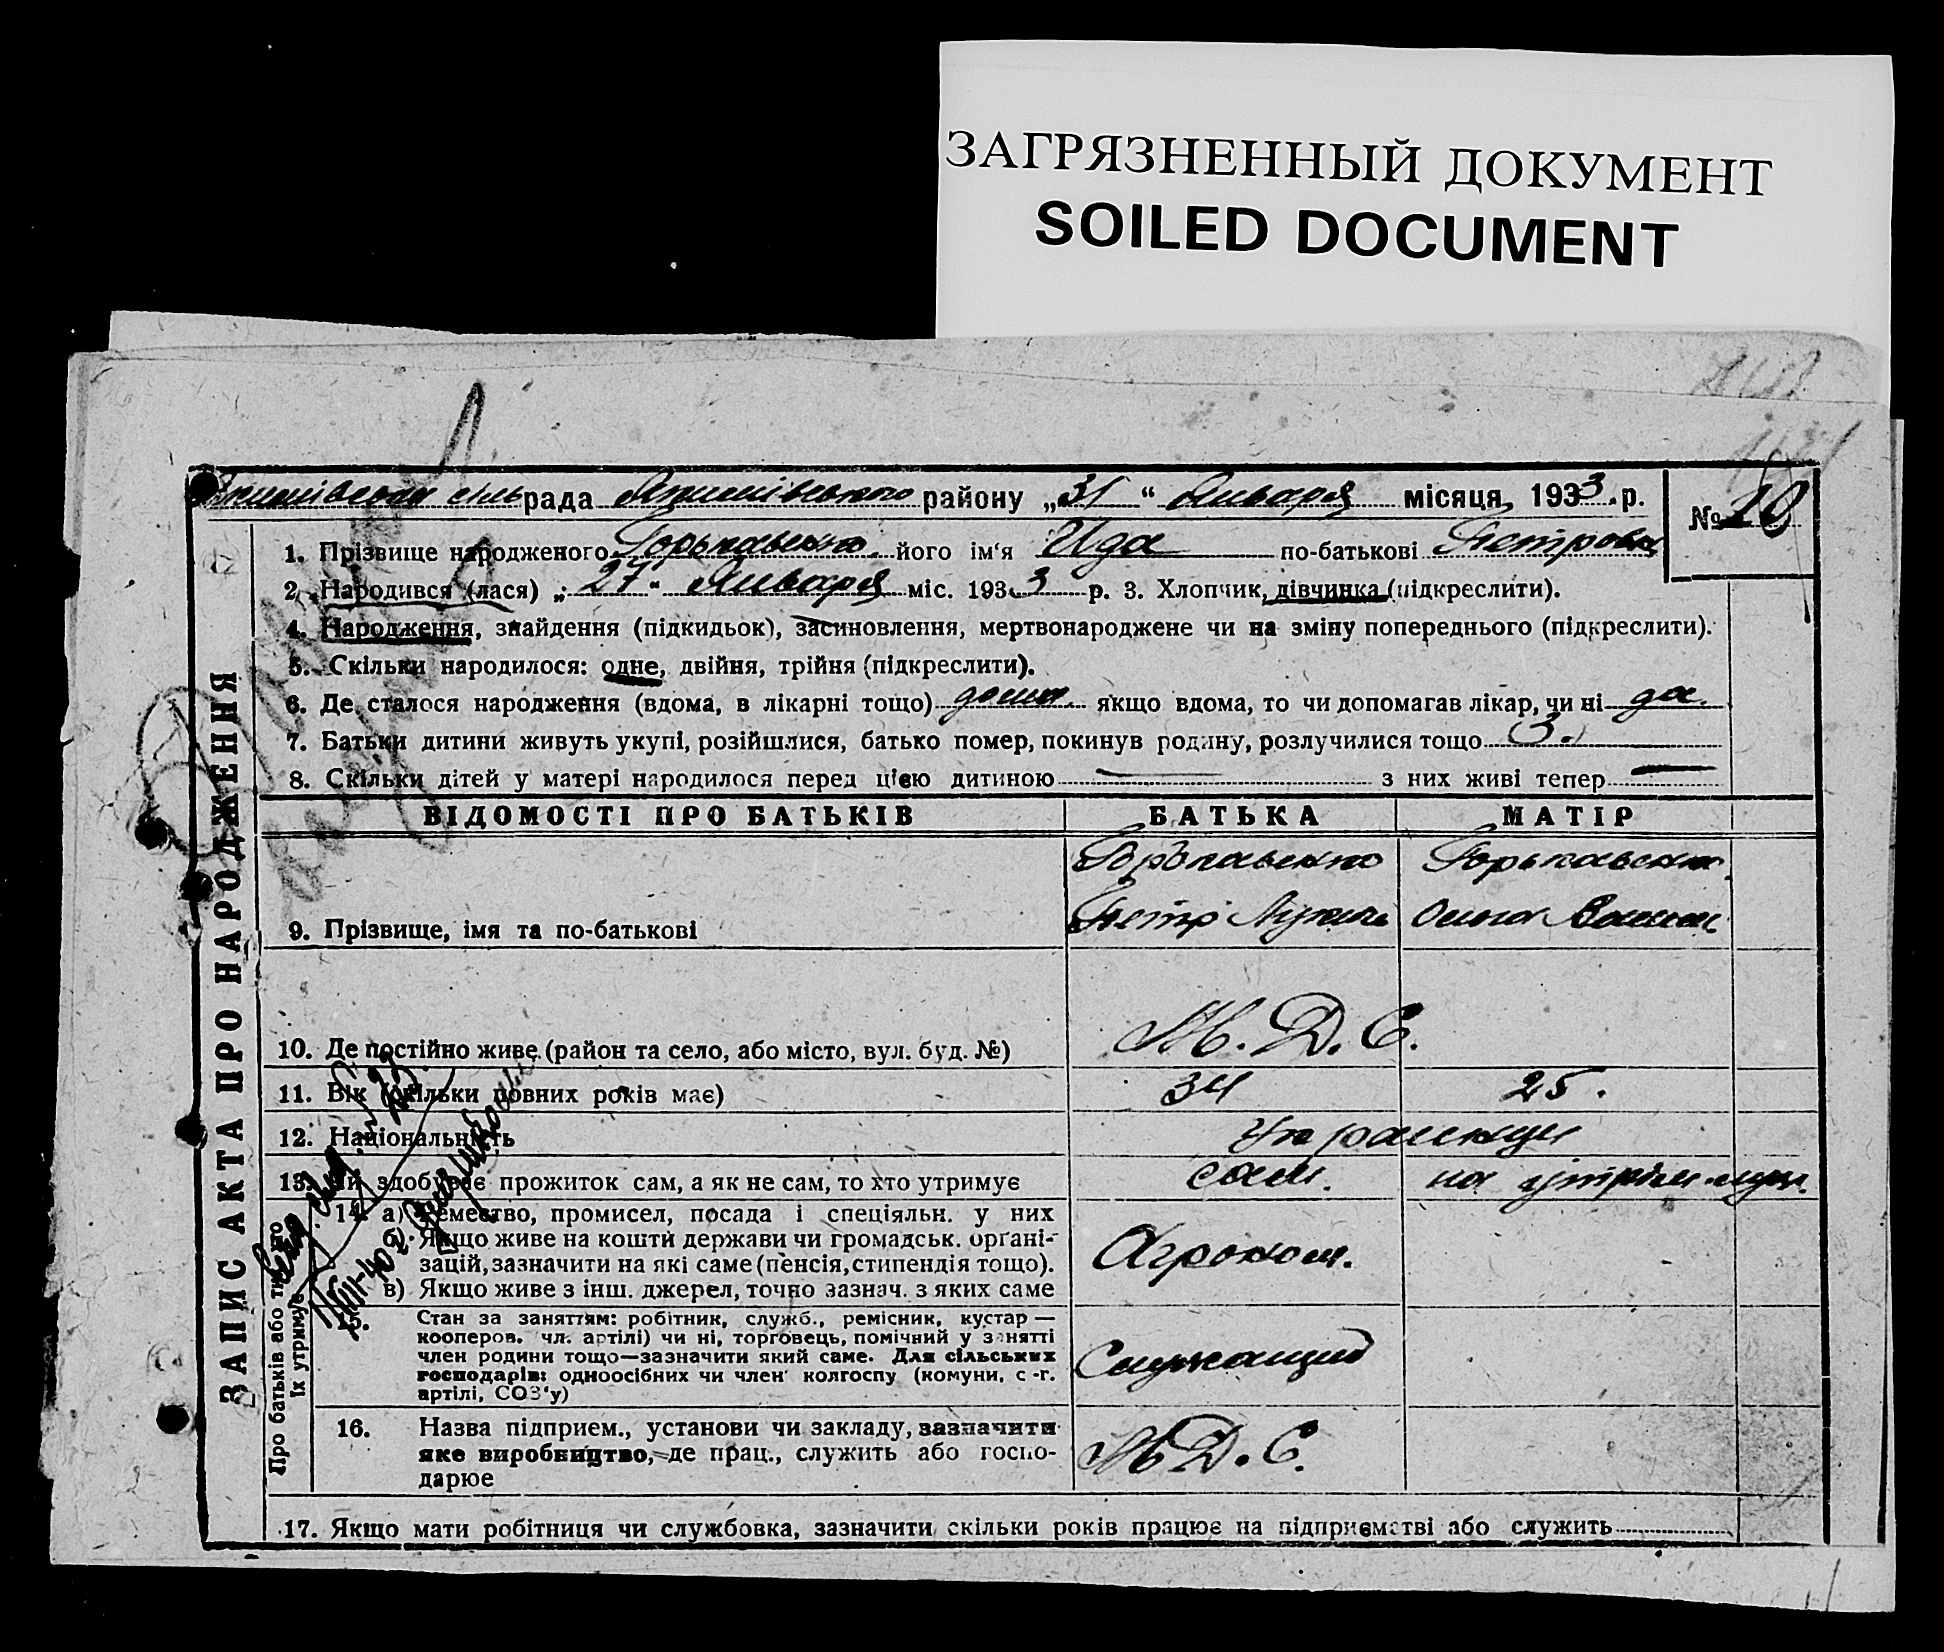 ЗАГРЯЗНЕННЫЙ ДОКУМЕНТ
SOILED DOCUMENT
рада району „31“ Января місяця, 1933 р.
№ 10
1. Прізвище народженого Горькавенко його ім'я Ида по-батькові Петровн
2. Народився (лася) „27“ Января міс. 1933 р. 3. Хлопчик, дівчинка (підкреслити).
4. Народження, знайдення (підкидьок), засиновлення, мертвонароджене чи на зміну попереднього (підкреслити).
5. Скільки народилося: одне, двійня, трійня (підкреслити).
6. Де сталося народження (вдома, в лікарні тощо) дома якщо вдома, то чи допомагав лікар, чи ні да
7. Батьки дитини живуть укупі, розійшлися, батько помер, покинув родину, розлучилися тощо
8. Скільки дітей у матері народилося перед цією дитиною — з них живі тепер —
ЗАПИС АКТА ПРО НАРОДЖЕННЯ
ВІДОМОСТІ ПРО БАТЬКІВ БАТЬКА МАТІР
Горькавенко Горькавенко
9. Прізвище, імя та по-батькові Петр
10. Де постійно живе (район та село, або місто, вул. буд. №) М. Д. С.
11. Вік (скільки повних років має) 34 25.
12. Національність Украинцы
13. Чи здобуває прожиток сам, а як не сам, то хто утримує сам. на утрим. муж.
Про батьків або тих, хто їх утримує
14. а) Ремество, промисел, посада і спеціяльн. у них
б) Якщо живе на кошти держави чи громадськ. органі-
зацій, зазначити на які саме (пенсія, стипендія тощо). Агроном.
в) Якщо живе з інш. джерел, точно зазнач. з яких саме
15. Стан за заняттям: робітник, служб., ремісник, кустар —
кооперов. чл. артілі) чи ні, торговець, помічний у занятті
член родини тощо—зазначити який саме. Для сільських
господарів: одноосібних чи член колгоспу (комуни, с.-г.
артілі, СОЗ'у)
Служащий
16. Назва підприєм., установи чи закладу, зазначити
яке виробництво, де прац., служить або госпо-
дарює
М. Д. С.
17. Якщо мати робітниця чи службовка, зазначити скільки років працює на підприємстві або служить